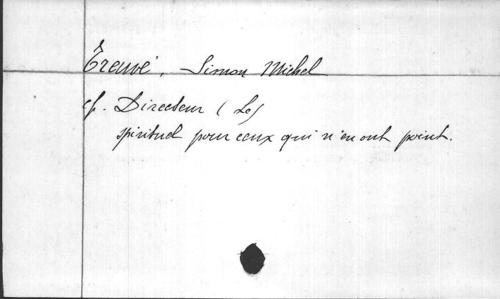 Treuvé, Simon Michel
cf. Directeur (Le)
spirituel pour ceux qui n'en ont point.